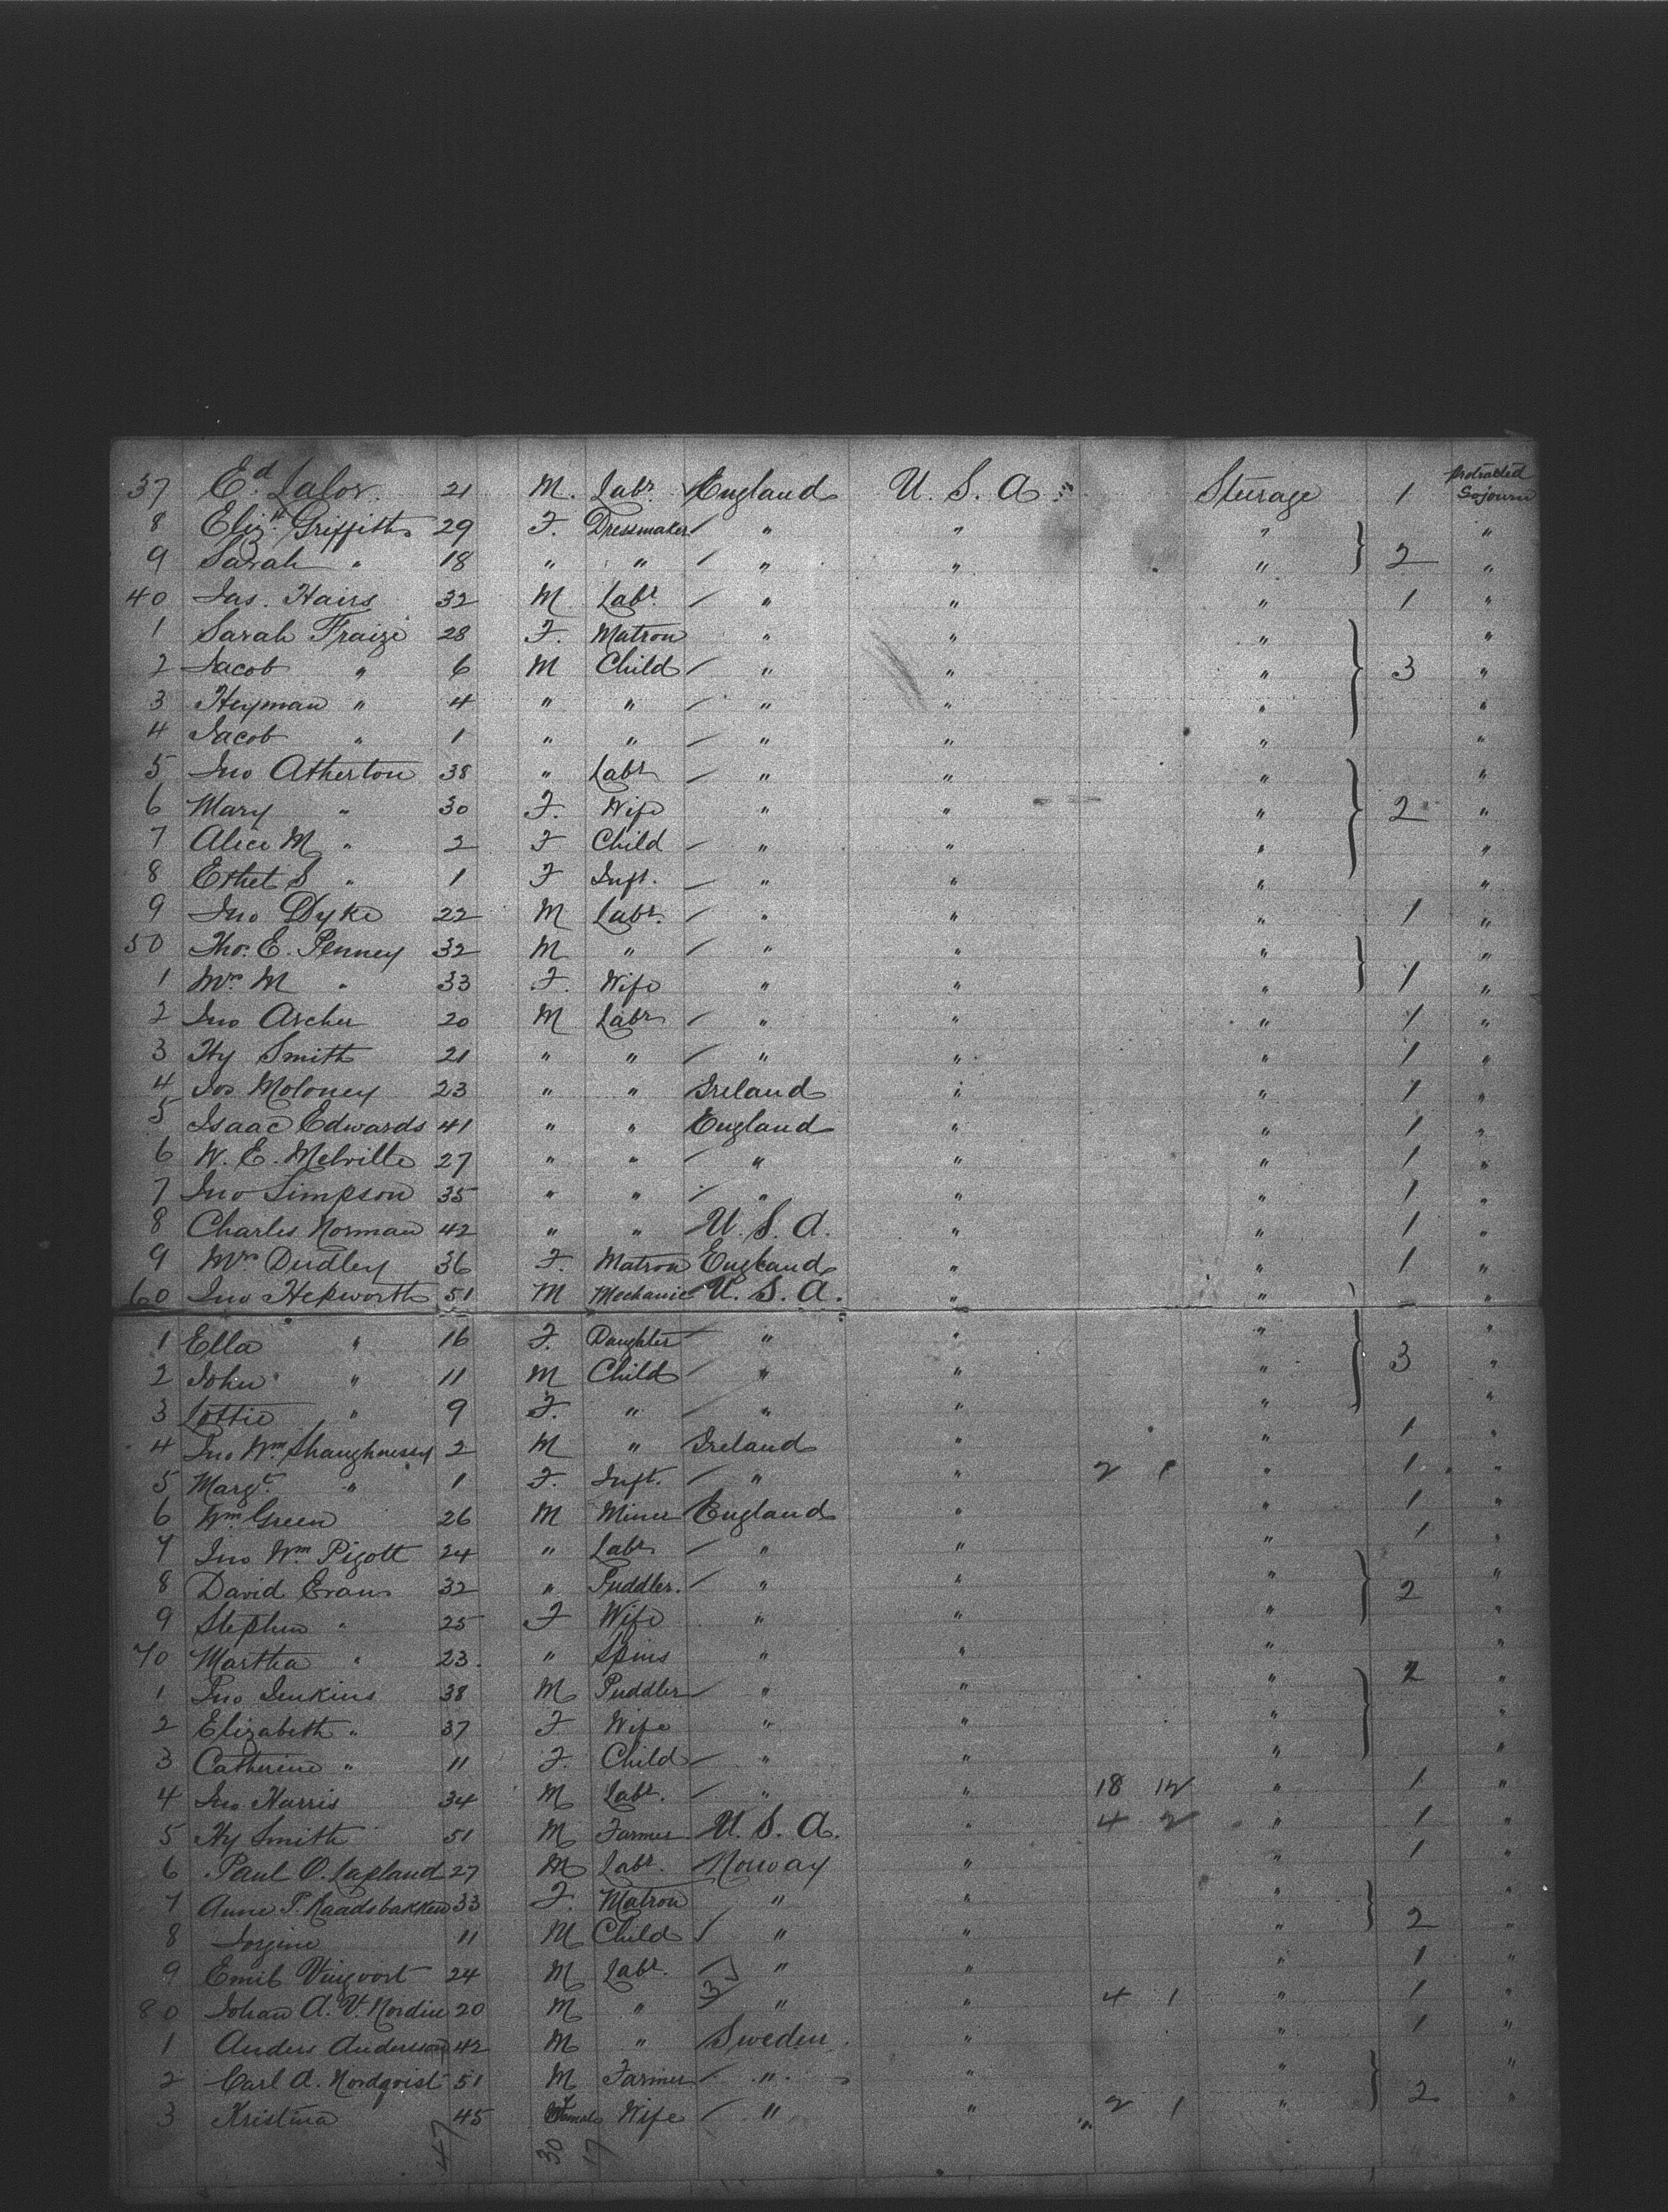 37 Ed. Lalor. 21 M. Labr. England U. S. A. Steerage 1 Protracted Sojourn
8 Elizth Griffiths 29 F. Dressmaker " " " "
9 Sarah " 18 " " " " " 2 "
40 Jas. Hairs 32 M Labr. " " " 1 "
1 Sarah Fraize 28 F. Matron " " " "
2 Jacob " 6 M Child " " " 3 "
3 Heyman " 4 " " " " " "
4 Jacob " 1 " " " " " "
5 Jno Atherton 38 " Labr " " " "
6 Mary " 30 F. Wife " " " 2 "
7 Alice M " 2 F Child " " " "
8 Ethel S " 1 F Inft. " " " "
9 Jno Dyke 22 M Labr. " " " 1 "
50 Thos. E. Penney 32 M " " " " "
1 Mrs. M " 33 F. Wife " " " 1 "
2 Jno Archer 20 M Labr " " " 1 "
3 Hy Smith 21 " " " " " 1 "
4 Jos Moloney 23 " " Ireland " " 1 "
5 Isaac Edwards 41 " " England " " 1 "
6 W. E. Melville 27 " " " " " 1 "
7 Jno Simpson 35 " " " " " 1 "
8 Charles Norman 42 " " U. S. A. " " 1 "
9 Mrs Dudley 36 F. Matron England " " 1 "
60 Jno Hepworth 51 M Mechanic U. S. A. " " "
1 Ella " 16 F. Daughter " " " "
2 John " 11 M Child " " " 3 "
3 Lottie " 9 F. " " " " "
4 Jno Wm. Shaughnessy 2 M " Ireland " " 1 "
5 Margt. " 1 F. Inft. " " 2 1 " 1 "
6 Wm. Green 26 M Miner England " " 1 "
7 Jno Wm. Pigott 24 " Labr " " " 1 "
8 David Evans 32 " Puddler. " " " 2 "
9 Stephen " 25 F Wife " " " "
70 Martha " 23. " Spins " " " "
1 Jno Jenkins 38 M Puddler " " " 2 "
2 Elizabeth " 37 F Wife " " " "
3 Catherine " 11 F. Child " " " "
4 Jno Harris 34 M Labr. " " 18 12 " 1 "
5 Hy Smith 51 M Farmer U. S. A. " 4 2 " 1 "
6 Paul O. Lapland 27 M Labr. Norway " " 1 "
7 Anne T. Raadsbakken 33 F. Matron " " " "
8 Jorgine 11 M Child " " " 2 "
9 Emil Vingvort 24 M Labr. " " " 1 "
80 Johan A. V. Nordin 20 M " 3 " " 4 1 " 1 "
1 Anders Anderson 42 M " Sweden " " 1 "
2 Carl A. Nordqvist 51 M Farmer " " " "
3 Kristina 45 Female Wife " " 2 1 " 2 "
47 30 17